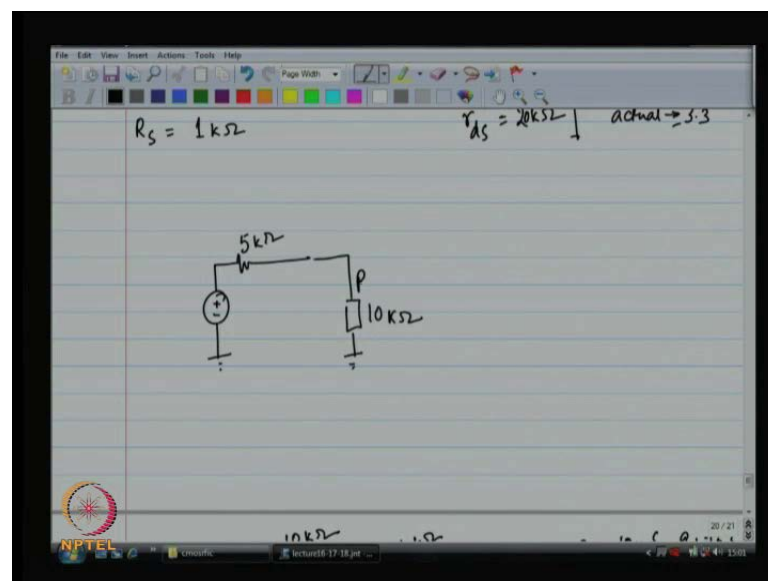 File Edit View Insert Actions Tools Help
Page Width
B I
R_S = 1 kΩ
r_ds = 20kΩ
actual → 3.3
5kΩ
+
-
P
10kΩ
10kΩ
20 / 21
NPTEL
cmosrfic
lecture16-17-18.jnt - ...
15:01